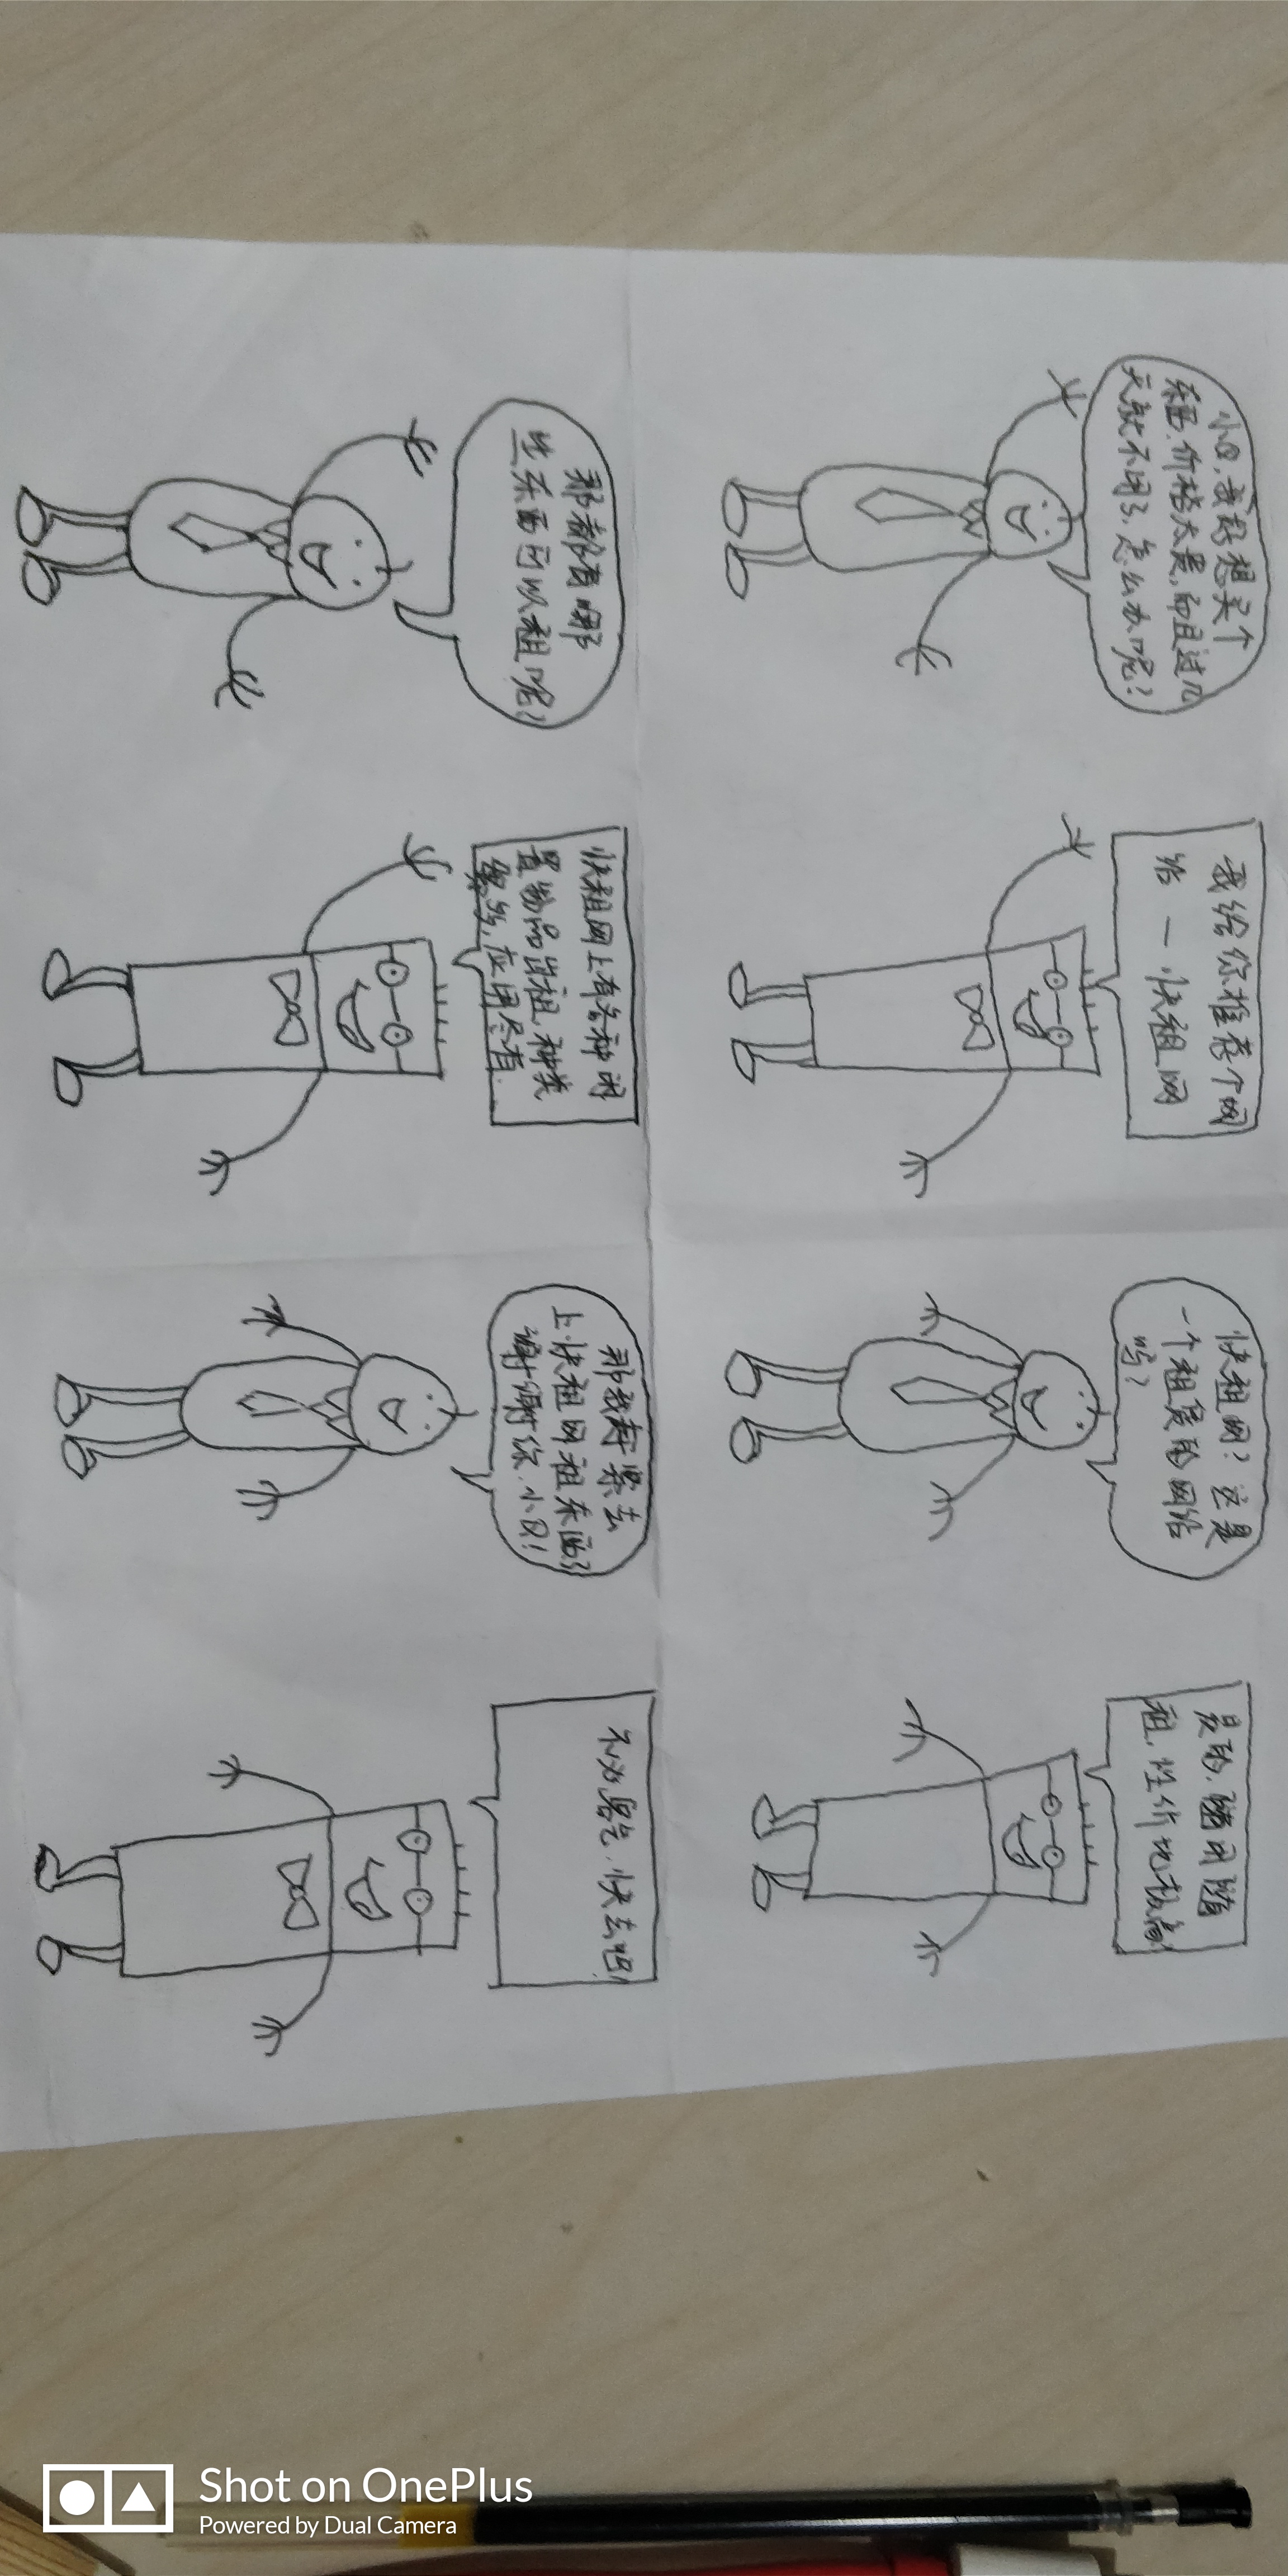 小口，我好想买个
东西，价格太贵，而且过几
天就不用了，怎么办呢？
我给你推荐个网
站—快租网
快租网？这是
一个租赁的网站
吗？
是的，随用随
租，性价比极高
那都有哪
些东西可以租呢？
快租网上有各种闲
置物品出租，种类
繁多，应用尽有．
那我赶紧去
上快租网租东西了
谢谢你．小口！
不必客气．快去吧！
Shot on OnePlus
Powered by Dual Camera